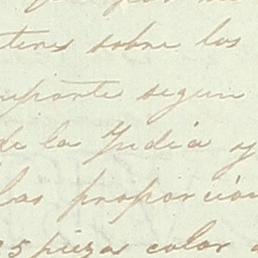 sobre los
importe segun
de la India y
las proporción
25 piezas color